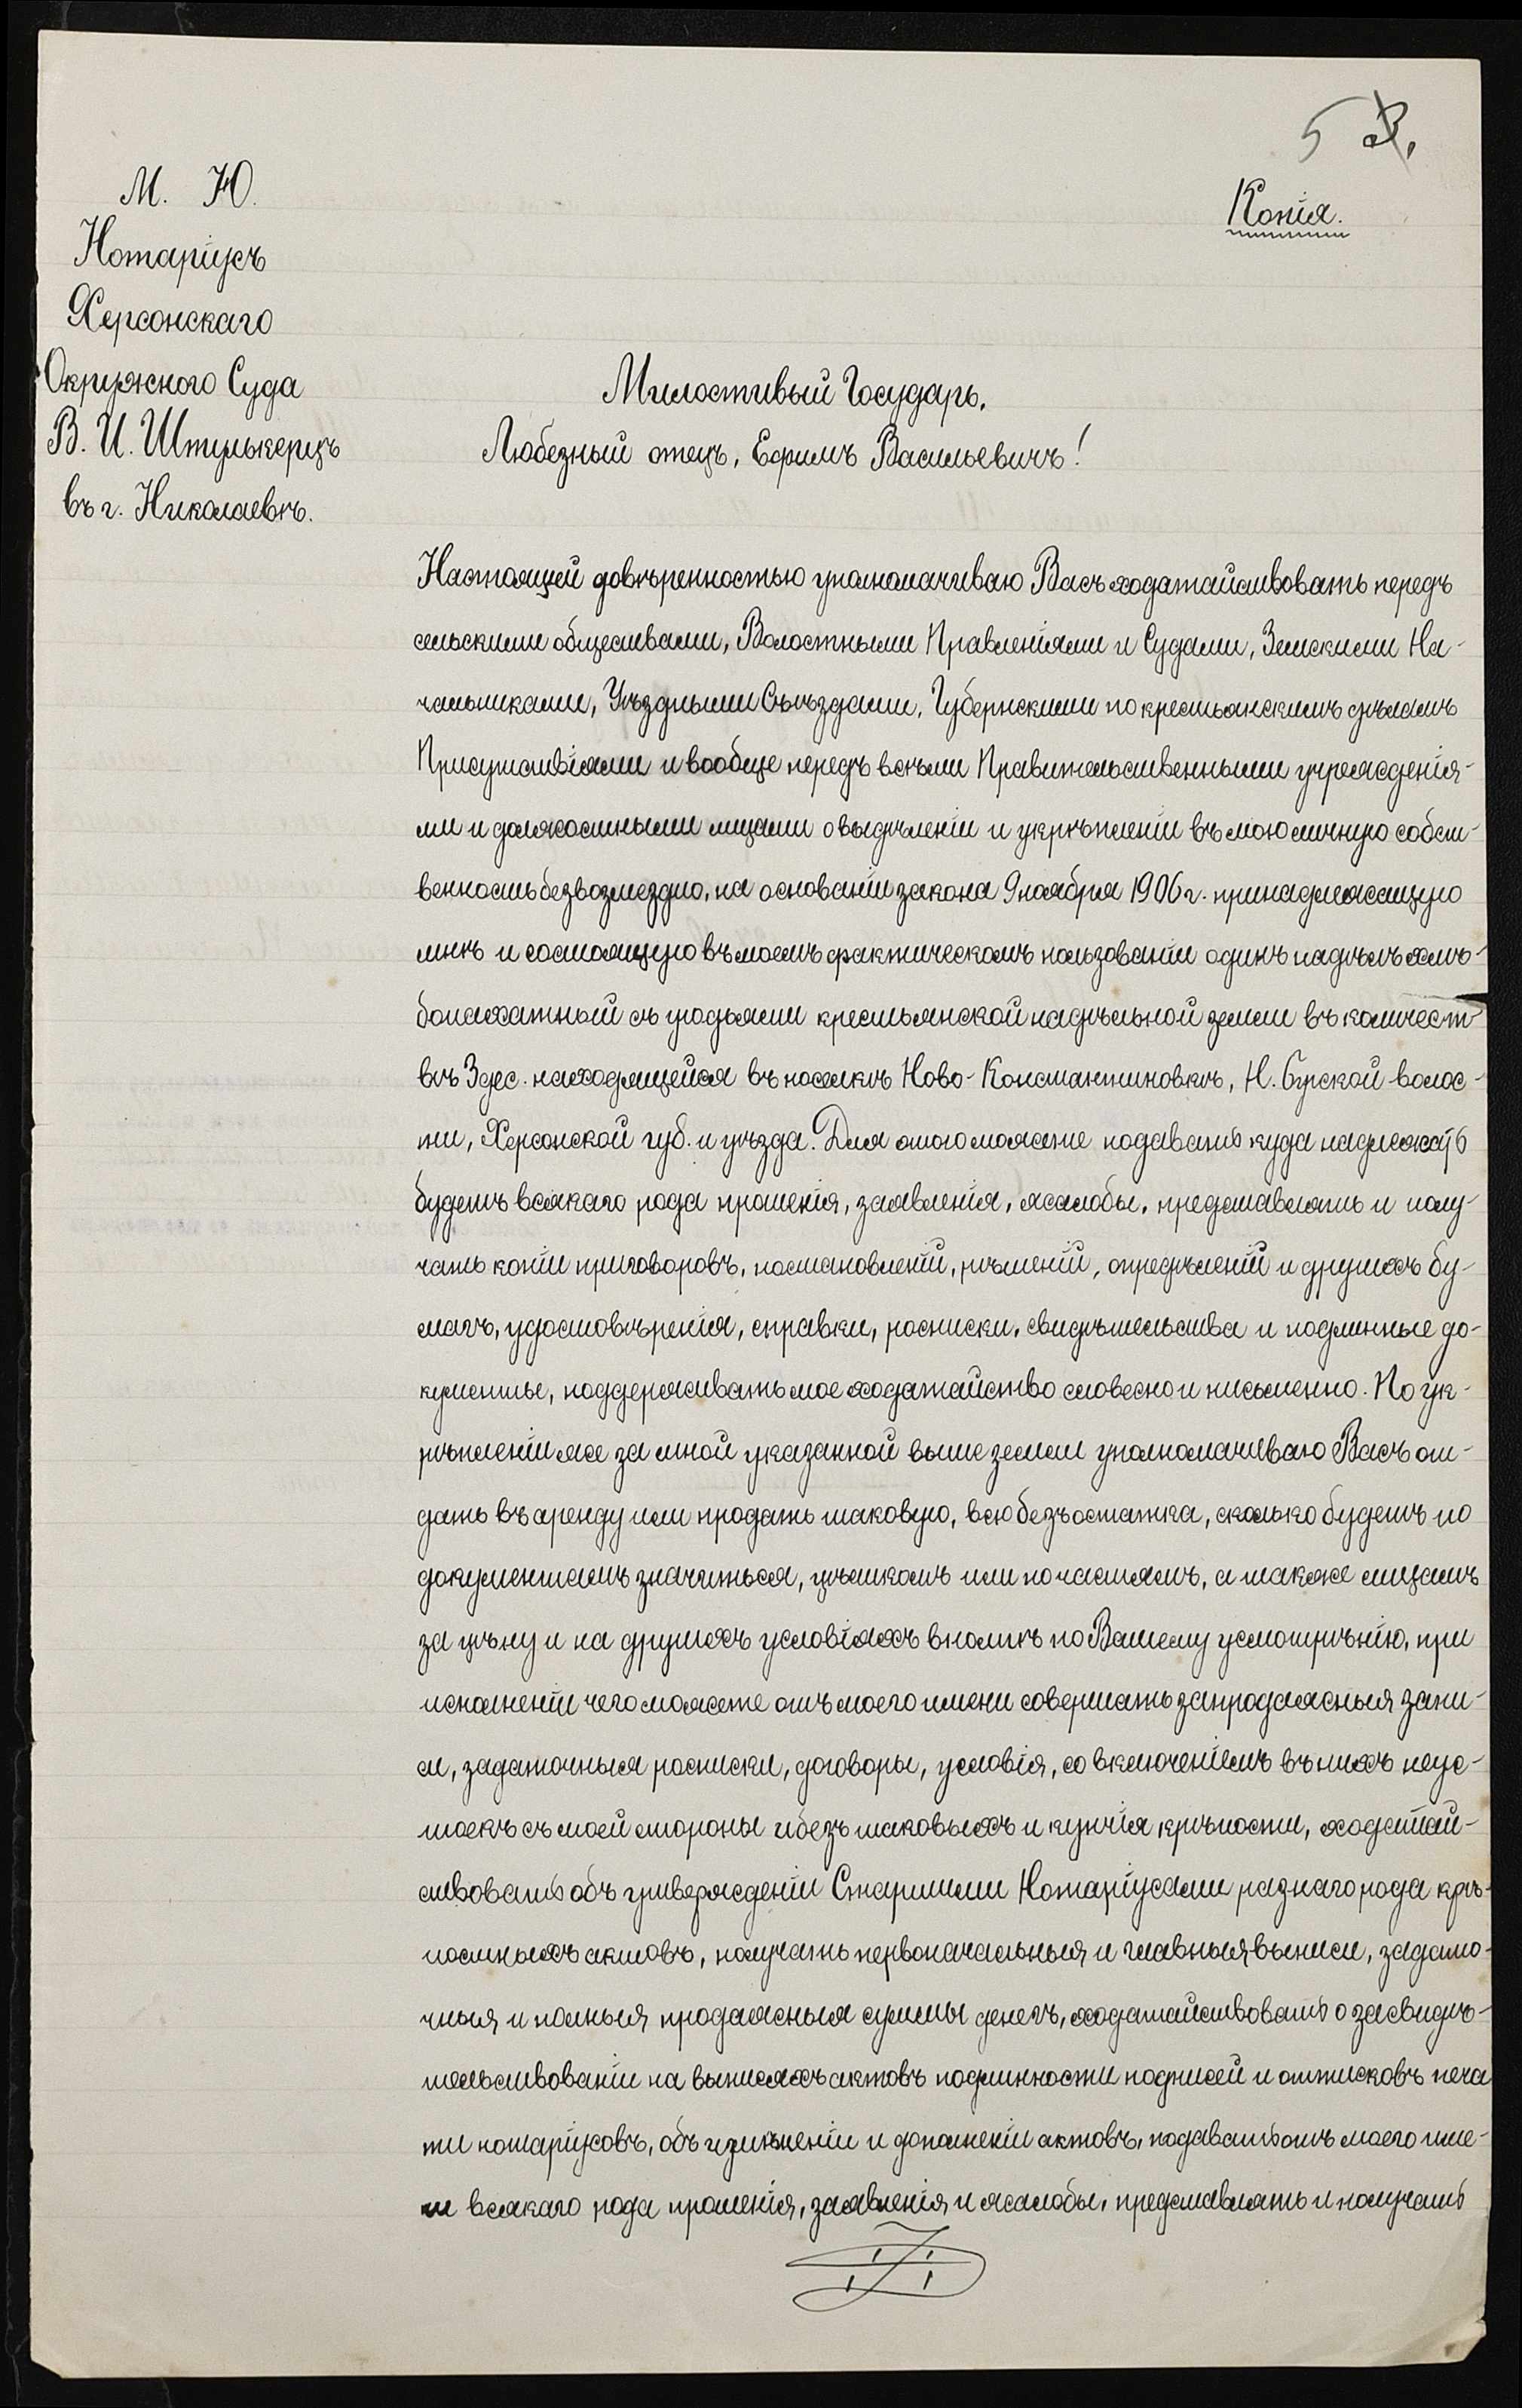 5 3.
Копія.
М. Ю.
Нотаріусъ
Херсонскаго
Окружного Суда
В. И. Штулькерцъ
въ г. Николаевѣ.
Милостивый Государь.
Любезный отецъ, Ефимъ Васильевичъ!
Настоящей довѣренностью уполномачиваю Васъ ходатайствовать передъ
сельскими обществами, Волостными Правленіями и Судами, Земскими На-
чальниками, Уѣздными Съѣздами, Губернскими по крестьянскимъ дѣламъ
Присутствіями и вообще передъ всѣми Правительственными учрежденія-
ми и должностными лицами о выдѣленіи и укрѣпленіи въ мою личную собст-
венность безвозмездно, на основаніи закона 9 ноября 1906 г. принадлежащую
мнѣ и состоящую въ моемъ фактическомъ пользованіи одинъ надѣлъ хлѣ-
бопахатный съ угодьями крестьянской надѣльной земли въ количест-
вѣ 3 дес. находящейся въ поселкѣ Ново-Константиновкѣ, Н. Бугской волос-
ти, Херсонской губ. и уѣзда. Для этого можете подавать куда надлежать
будетъ всякаго рода прошенія, заявленія, жалобы, представлять и полу-
чать копіи приговоровъ, постановленій, рѣшеній, опредѣленій и другихъ бу-
магъ, удостовѣренія, справки, росписки, свидѣтельства и подлинные до-
кументы, поддерживать мое ходатайство словесно и письменно. По ук-
рѣпленіи же за мной указанной выше земли уполномачиваю Васъ от-
дать въ аренду или продать таковую, всю безъ остатка, сколько будетъ по
документамъ значиться, цѣликомъ или по частямъ, а также лицамъ
за цѣну и на другихъ условіяхъ вполнѣ по Вашему усмотрѣнію, при
исполненіи чего можете отъ моего имени совершать запродажныя запи-
си, задаточныя росписки, договоры, условія, со включеніемъ въ нихъ неус-
тоекъ съ моей стороны и безъ таковыхъ и купчія крѣпости, ходатай-
ствовать объ утвержденіи Старшими Нотаріусами разнаго рода крѣ-
постныхъ актовъ, получать первоначальныя и главныя выписи, задато-
чныя и полныя продажныя суммы денегъ, ходатайствовать о засвидѣ-
тельствованіи на выписяхъ актовъ подлинности подписей и оттисковъ печа
ти нотаріусовъ, объ измѣненіи и дополненіи актовъ, подавать отъ моего име-
ни всякаго рода прошенія, заявленія и жалобы, представлять и получать